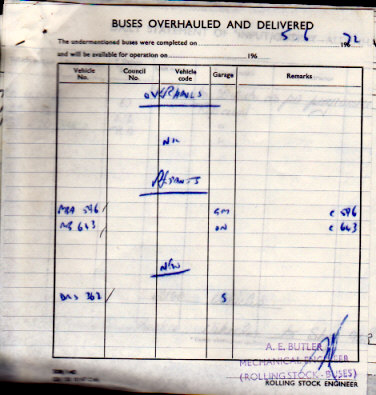 BUSES OVERHAULED AND DELIVERED
The undermentioned buses were completed on 5 6 196 72
and will be available for operation on 196
Vehicle No. Council No. Vehicle code Garage Remarks
OVERHAULS
NIL
REPAINTS
MBA 596/ GM C 596
MB 643/ ON C 643
NEW
DMS 362/ S
A. E. BUTLER
MECHANICAL ENGINEER
(ROLLING STOCK - BUSES)
ROLLING STOCK ENGINEER